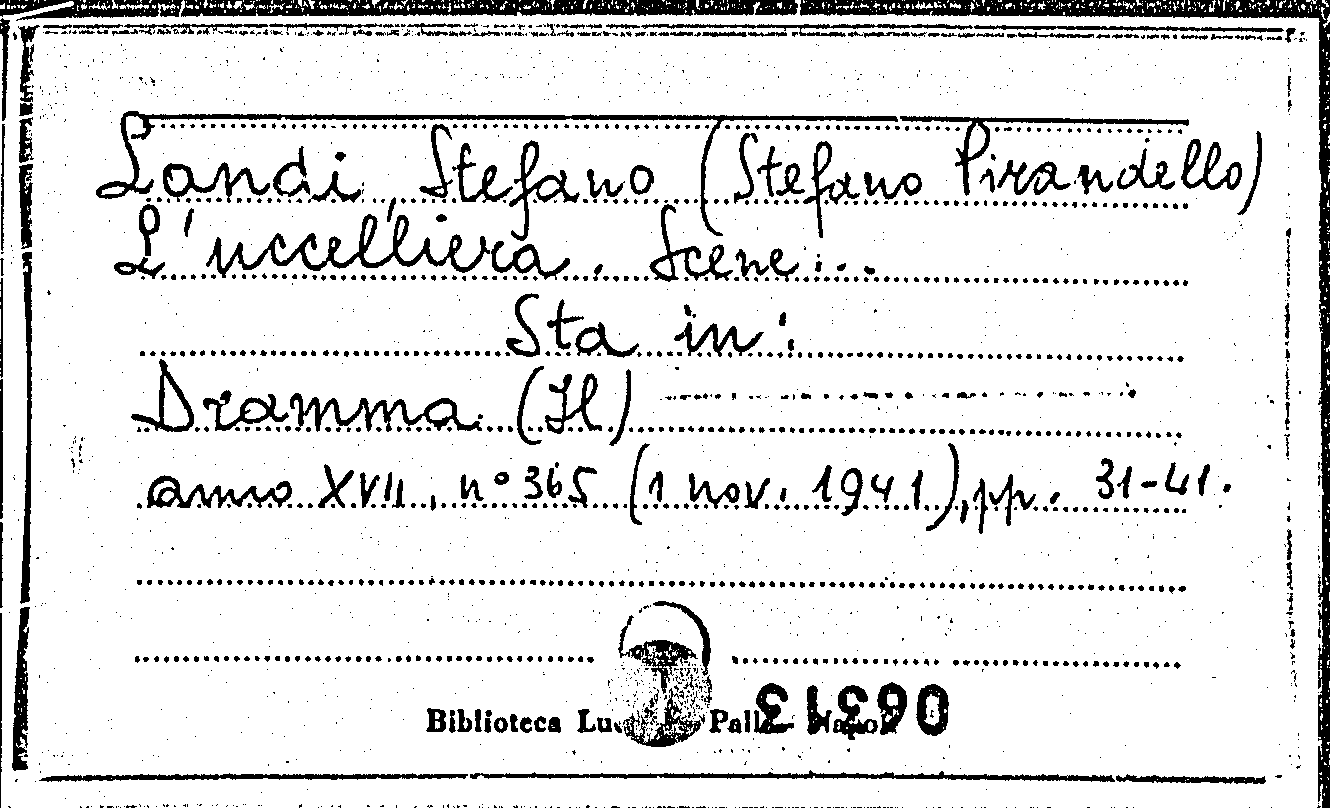 Landi, Stefano (Stefano Pirandello)
L'uccelliera. Scene...
Sta in:
Dramma (Il)
anno XVII, n° 365 (1 nov. 1941), pp. 31-41.
Biblioteca
06313